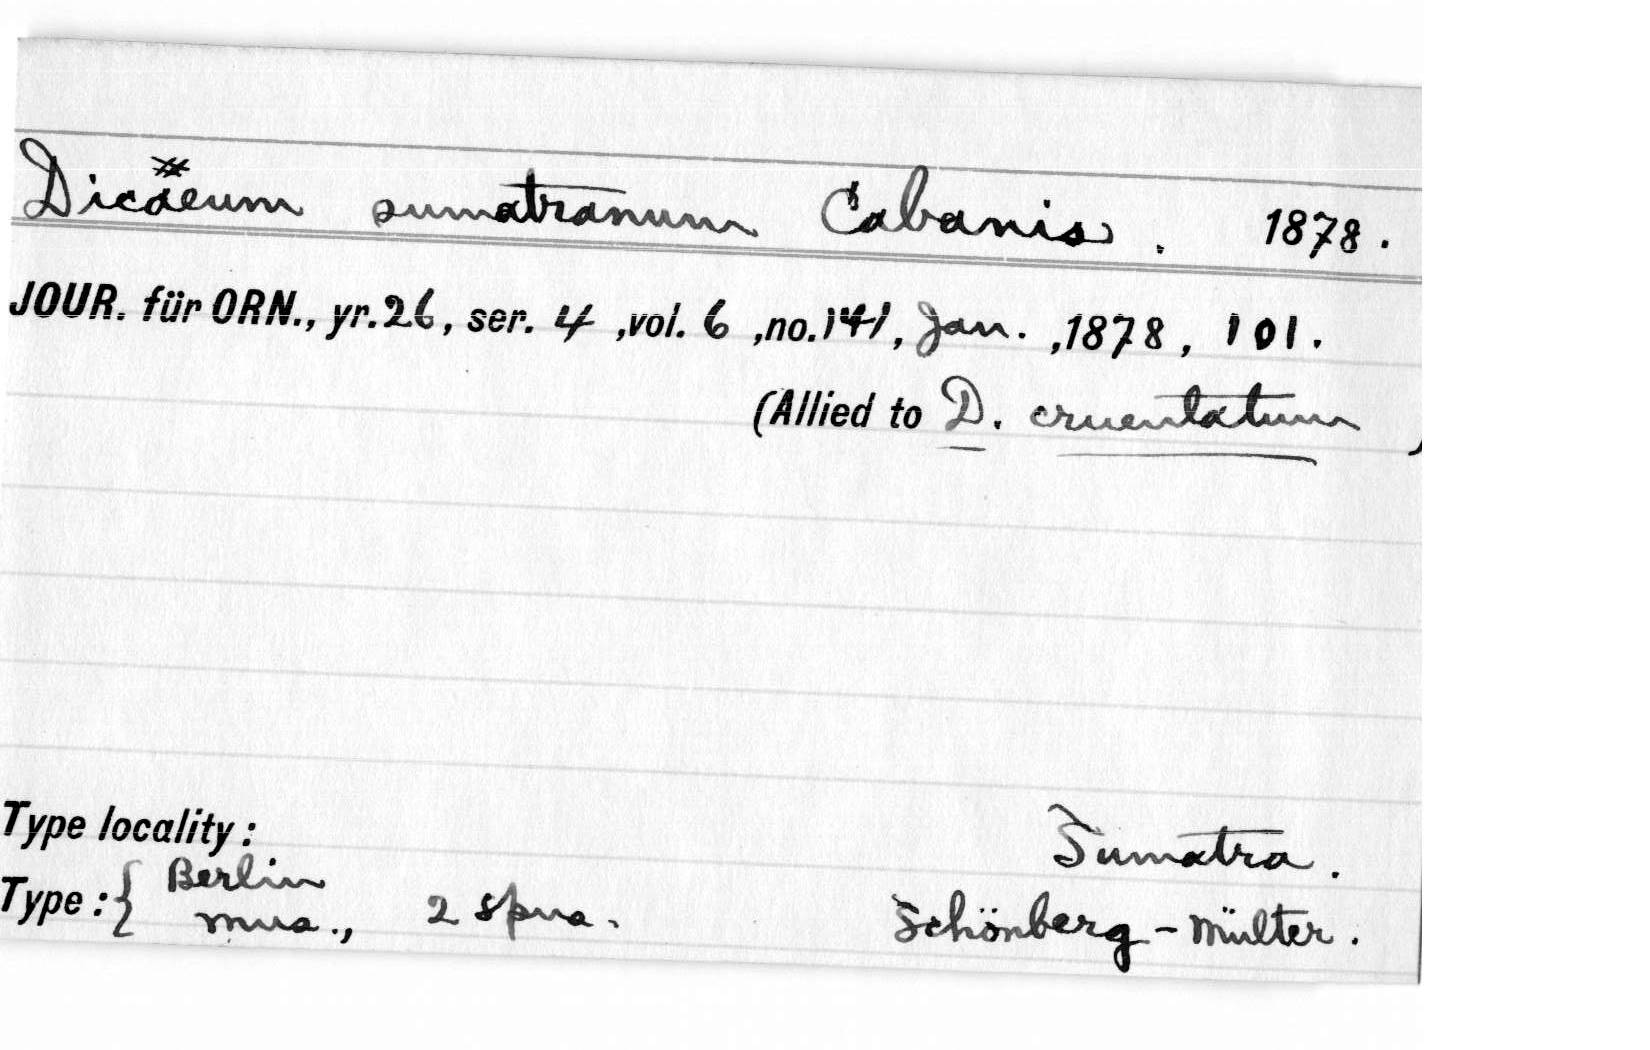 Dicaeum sumatranum Cabanis. 1878.
JOUR. für ORN., yr. 26, ser. 4, vol. 6, no. 141, Jan., 1878, 101.
(Allied to D. cruentatum)
Type locality: Sumatra.
Type: { Berlin
mus., 2 spns. Schönberg-Mülter.